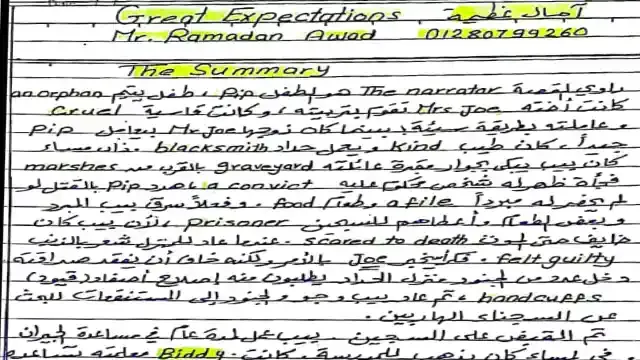 Great Expectations آمال عظيمة
Mr. Ramadan Awad 01280799260
The Summary
راوي القصة The narrator هو الطفل Pip، طفل يتيم an orphan
كانت أخته Mrs Joe تقوم بتربيته، وكانت قاسية Cruel
وعاملته بطريقة سيئة، بينما كان زوجها Mr Joe يعامل Pip
جيداً، كان طيب Kind ويعمل حداد blacksmith. ذات مساء
كان بيب يبكي بجوار مقبرة عائلته graveyard بالقرب من marshes
فجأة ظهر له شخص محكوم عليه a convict هدد Pip بالقتل لو
لم يحضر له مبرداً a file وطعام food. وفعلاً سرق بيب المبرد
وبعض الطعام وأعطاهم للسجين prisoner، لأن بيب كان
خايف حتى الموت scared to death. عندما عاد للمنزل شعر بالذنب
felt guilty. فكر أن يخبر Joe بالأمر ولكنه خاف أن يفقد صداقته
دخل عدد من الجنود منزل الحداد يطلبون منه إصلاح أصفاد (قيود)
handcuffs، ثم عاد بيب وجو والجنود إلى المستنقعات للبحث
عن السجناء الهاربين.
تم القبض على السجين. بيب عمل لمدة عام في مساعدة الجيران
في المساء كان يذهب للمدرسة. كانت Biddy معلمته تساعده